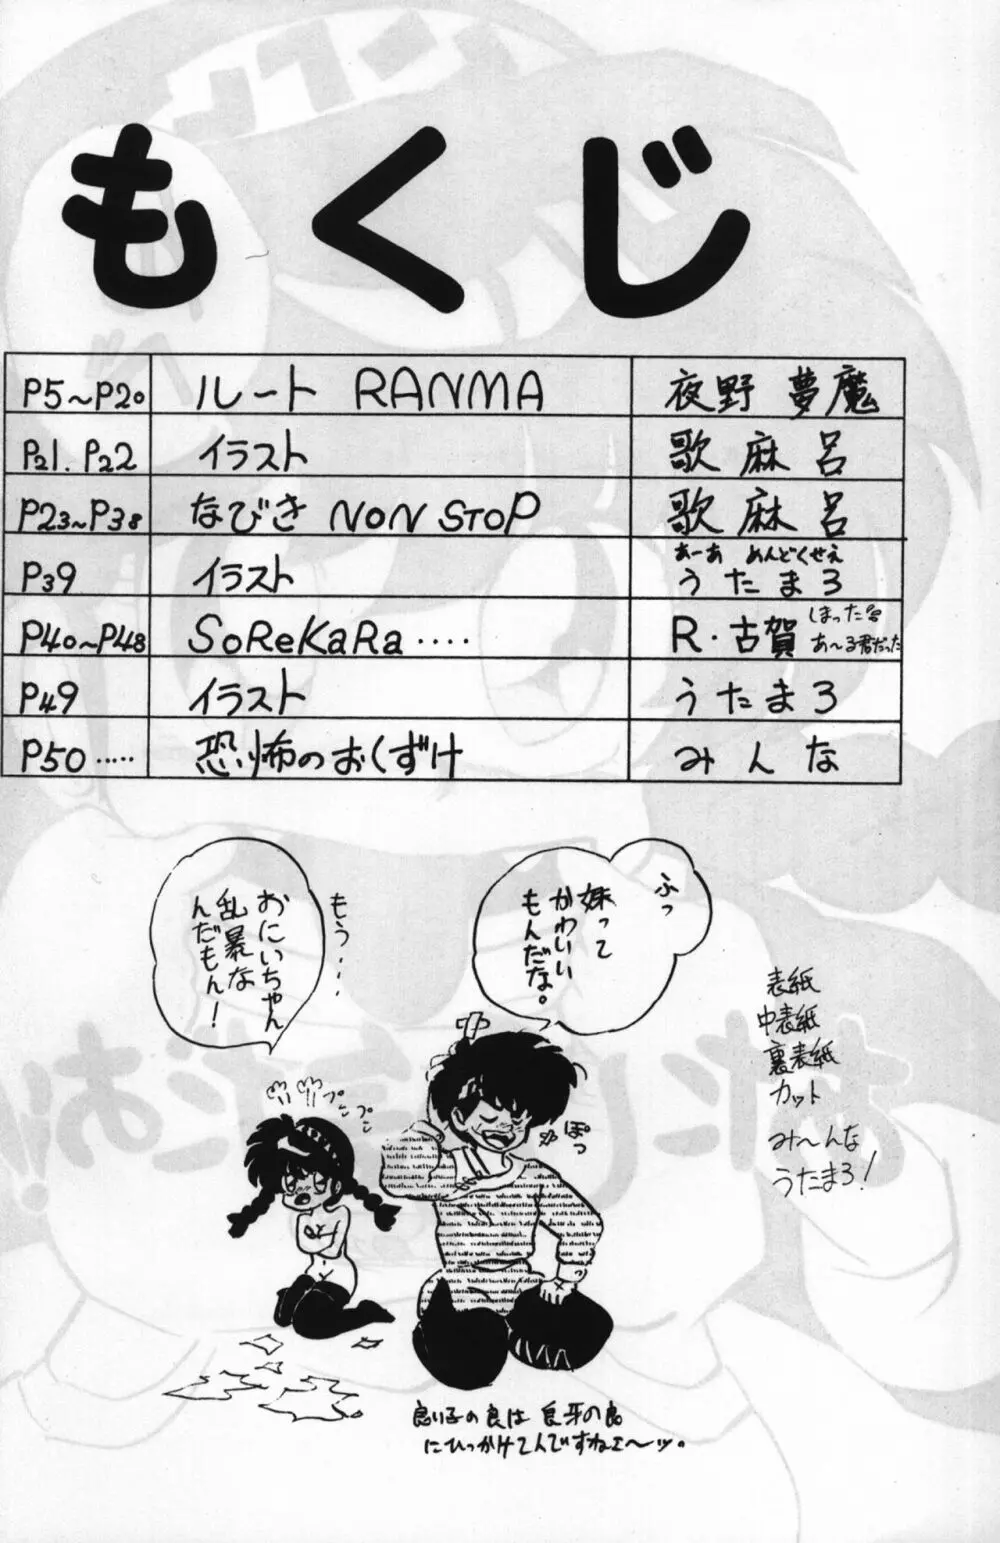 もくじ
P5～P20 ルート RANMA 夜野 夢魔
P21.P22 イラスト 歌麻呂
P23～P38 なびき NON STOP 歌麻呂
あーあ めんどくせえ
P39 イラスト うたまろ
P40～P48 SoReKaRa‥‥ R・古賀 しまった
あ～る君だった
P49 イラスト うたまろ
P50‥‥‥ 恐怖のおくずけ みんな
ふっ
妹って
かわいい
もんだな。
もう・・・
おにいちゃん
乱暴な
んだもん!
プン
プン
ぽっ
表紙
中表紙
裏表紙
カット
み～んな
うたまろ!
良い子の良は 良牙の良
にひっかけてんですねェ～ッ。